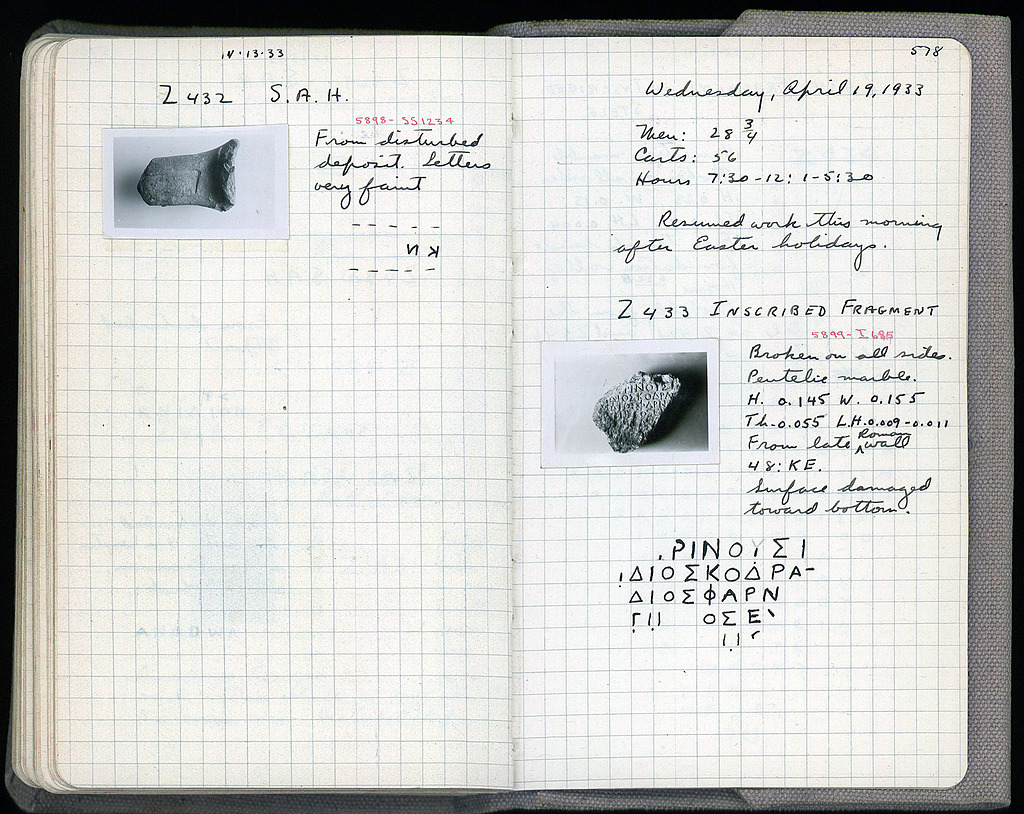 IV·13·33
Z 432 S.A.H.
5898-SS1234
From disturbed
deposit. Letters
very faint
– – – – –
И ʞ
– – – – –
578
Wednesday, April 19, 1933
Men: 28 3/4
Carts: 56
Hours 7:30-12: 1-5:30
Resumed work this morning
after Easter holidays.
Z 433 INSCRIBED FRAGMENT
5899-I 685
Broken on all sides.
Pentelic marble.
H. 0.145 W. 0.155
Th. 0.055 L.H. 0.009-0.011
From late Roman wall
48: KE.
Surface damaged
toward bottom.
.ΡΙΝΟΥΣΙ
ΔΙΟΣΚΟΔΡΑ-
ΔΙΟΣΦΑΡΝ
ΓΙΙ ΟΣΕ